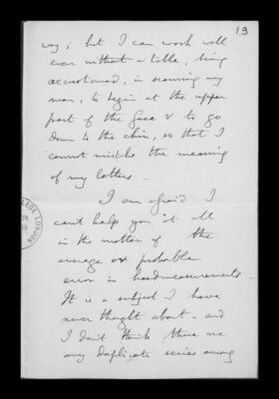 89
way; but I can work well
even without a table, being
accustomed, in scanning my
man, to begin at the upper
part of the face & to go
down to the chin, so that I
cannot mistake the meaning
of my letters.
I am afraid I
can't help you at all
in the matter of the
average or probable
error in headmeasurements.
It is a subject I have
never thought about - and
I don't think there are
any duplicate series among
LONDON